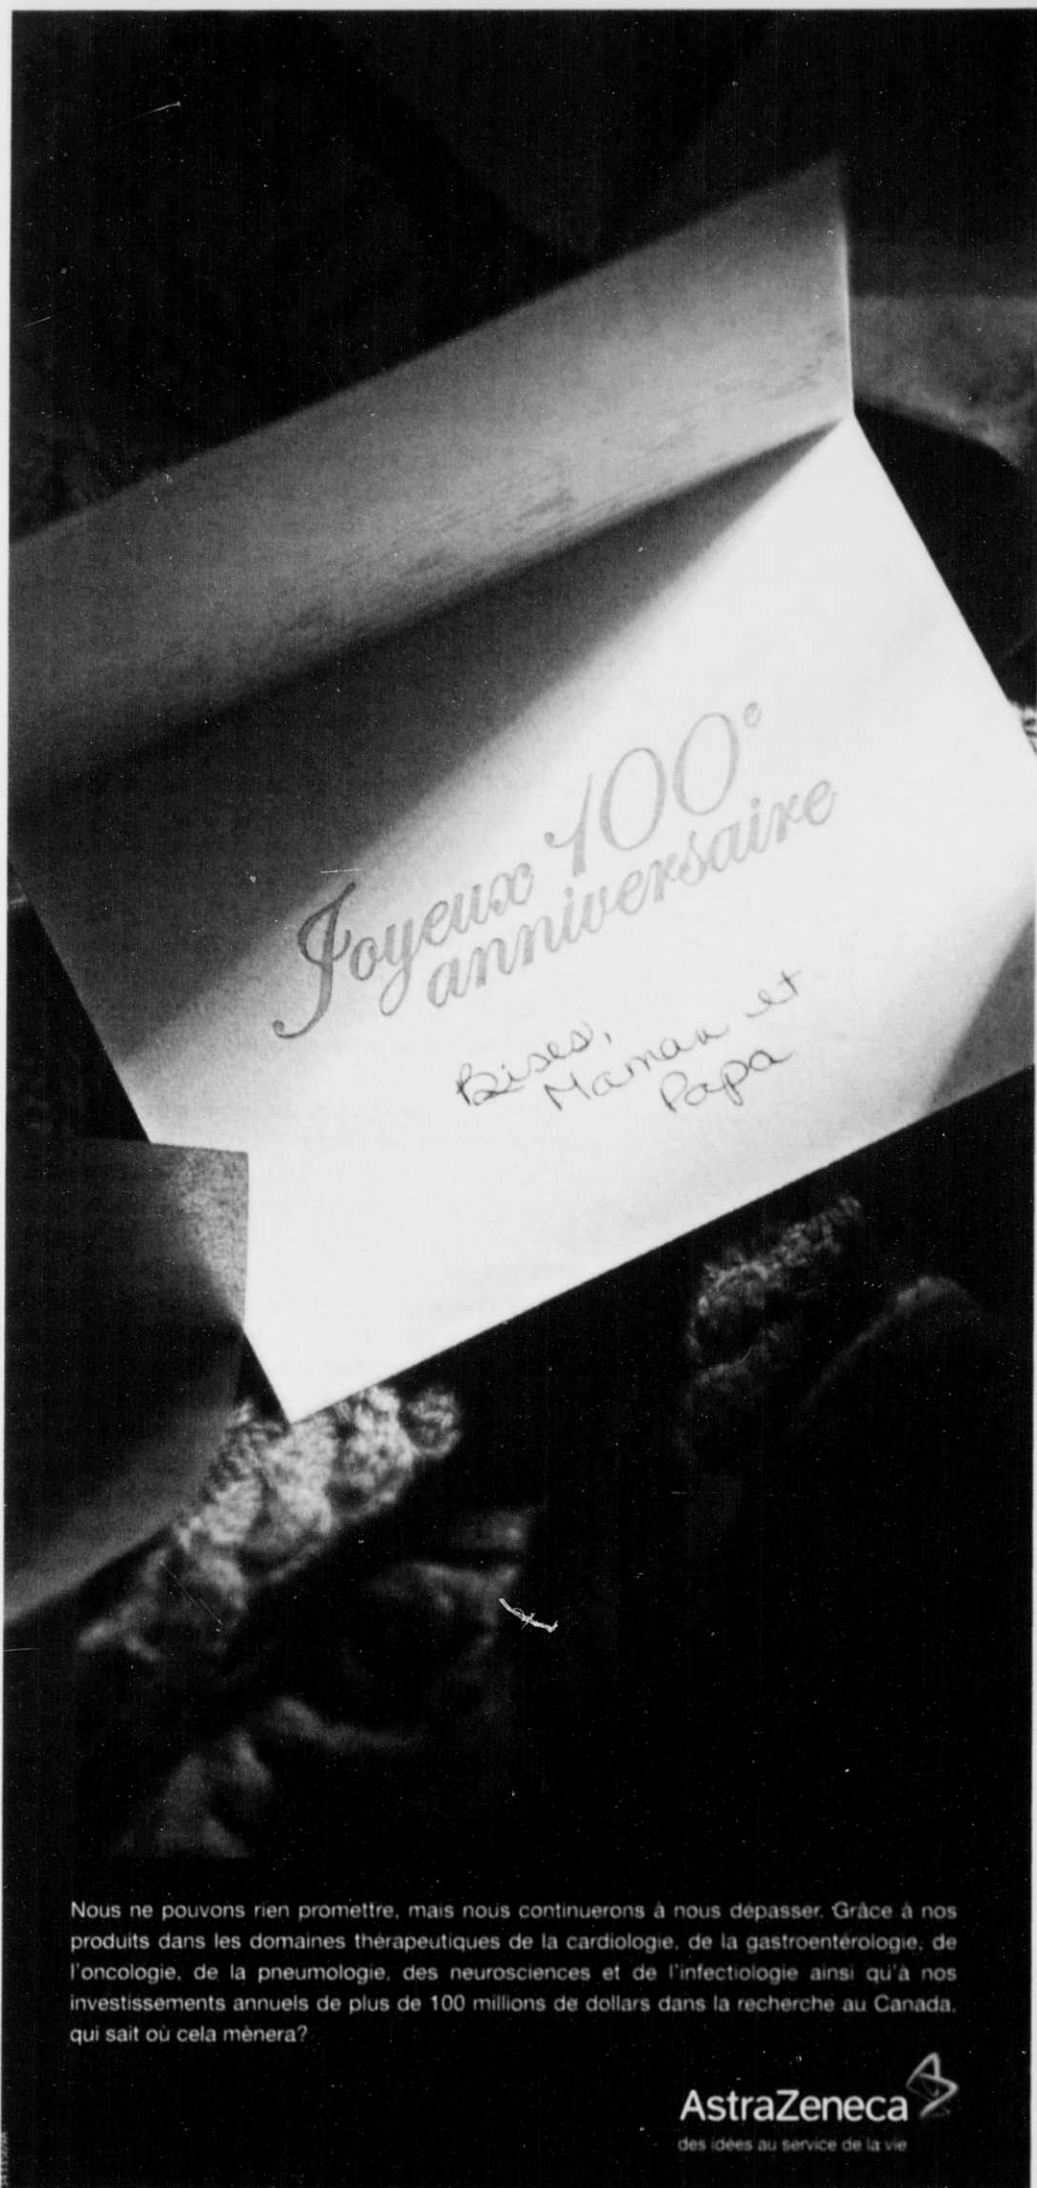 Joyeux 100e
anniversaire
Bises,
Maman et
Papa
Nous ne pouvons rien promettre, mais nous continuerons à nous dépasser. Grâce à nos
produits dans les domaines thérapeutiques de la cardiologie, de la gastroentérologie, de
l'oncologie, de la pneumologie, des neurosciences et de l'infectiologie ainsi qu'à nos
investissements annuels de plus de 100 millions de dollars dans la recherche au Canada,
qui sait où cela mènera?
AstraZeneca
des idées au service de la vie